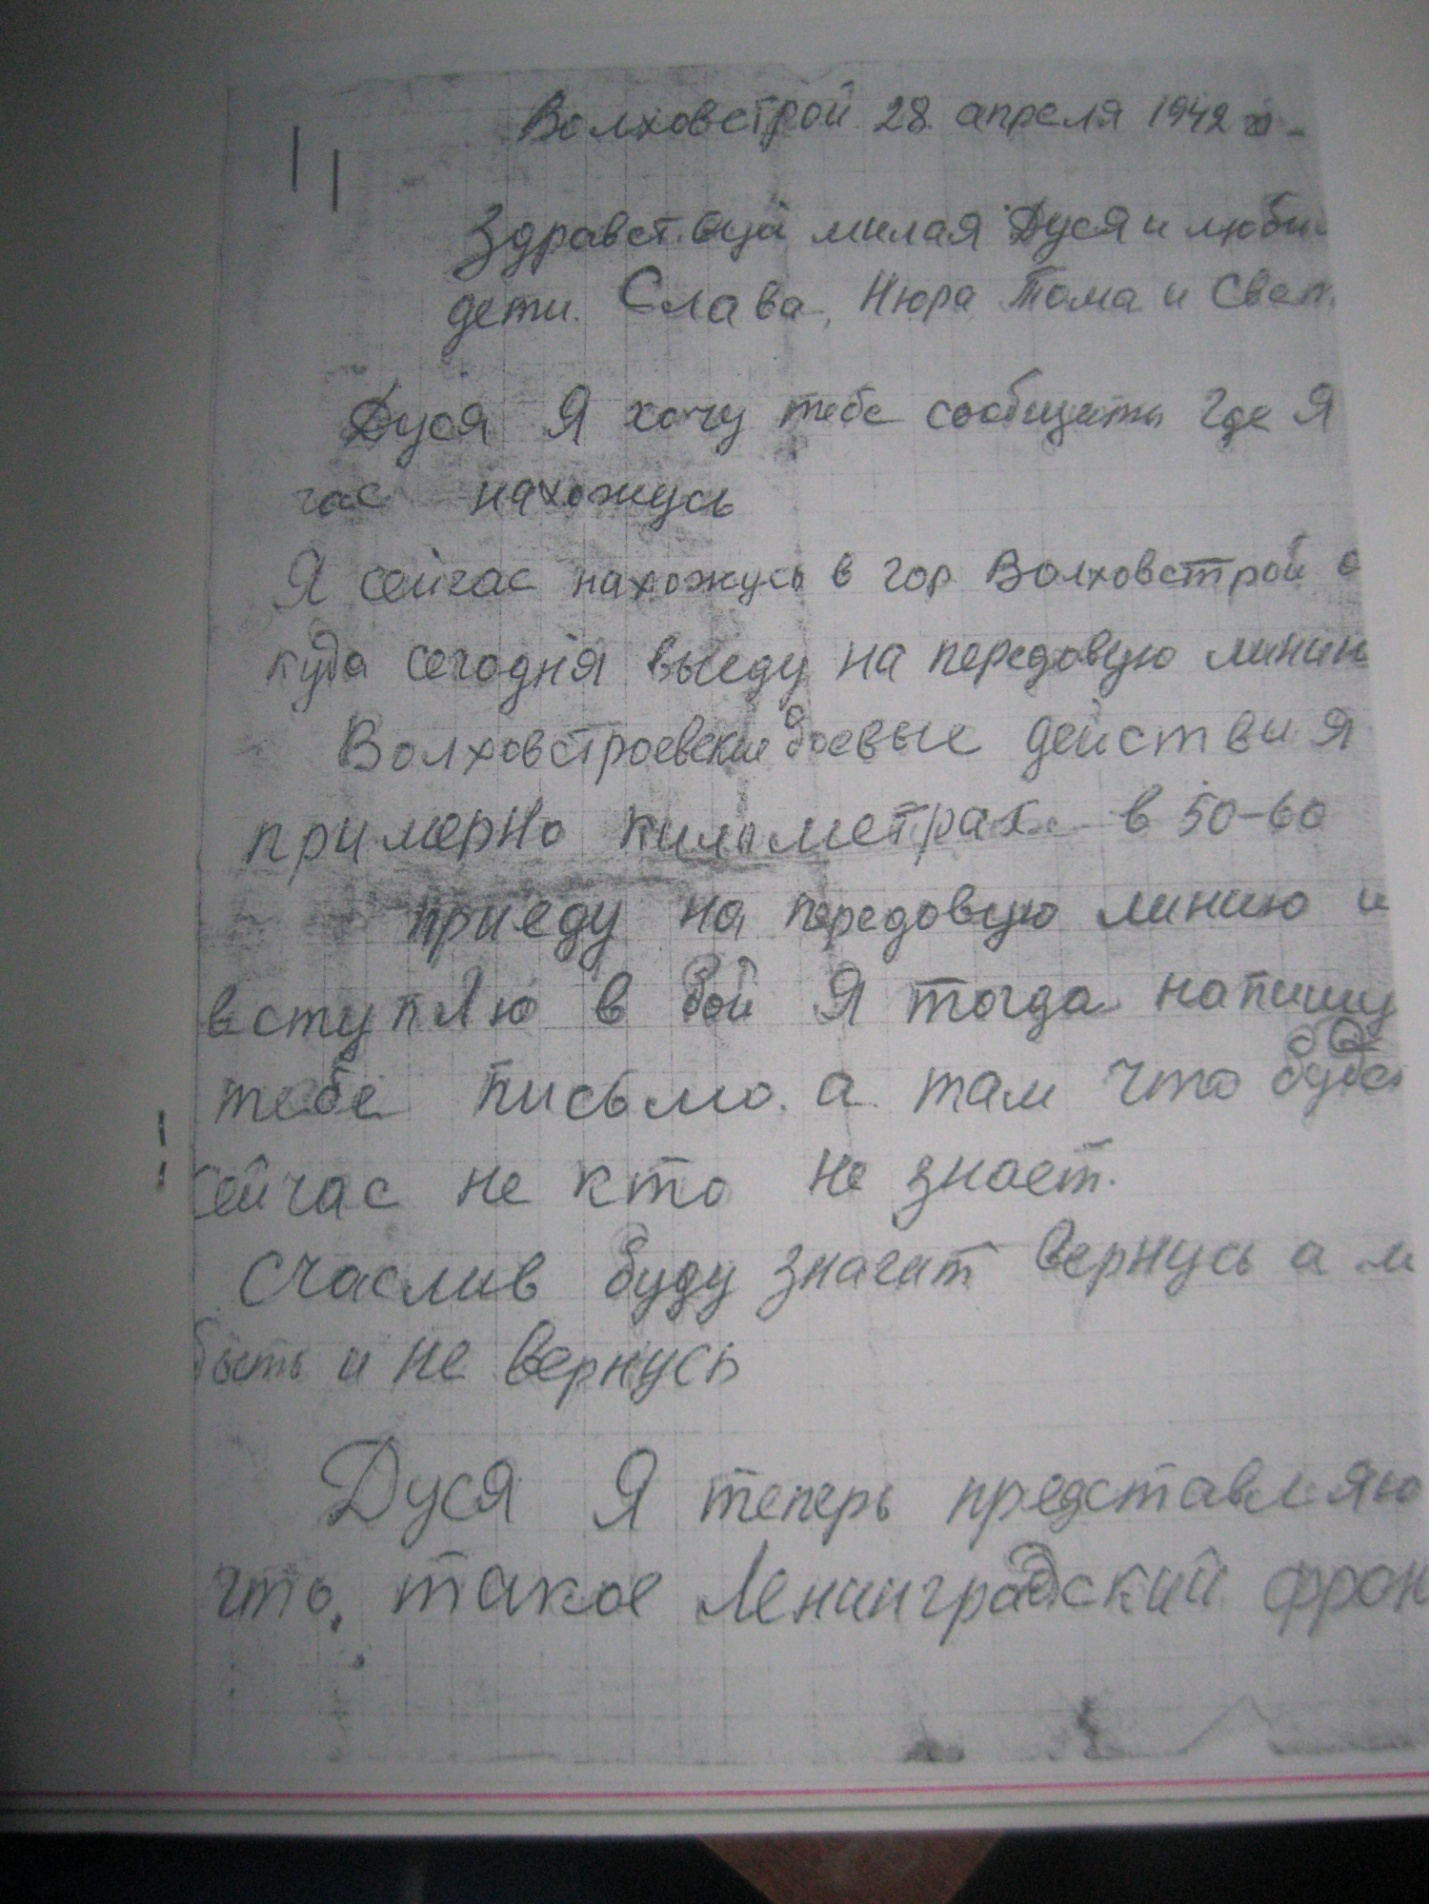 Волховстрой 28 апреля 1942 г.
Здравствуй милая Дуся и люби
дети. Слава, Нюра Тома и Свет
Дуся Я хочу тебе сообщить где Я
час нахожусь
Я сейчас нахожусь в гор Волховстрой о
куда сегодня выеду на передовую линию
Волховстроевские боевые действия
примерно километрах в 50-60
приеду на передовую линию и
вступлю в бой Я тогда напишу
тебе письмо. а там что будет
сейчас не кто не знает.
Счаслив буду значит вернусь а м
быть и не вернусь
Дуся Я теперь представляю
что. такое Ленинградский фрон